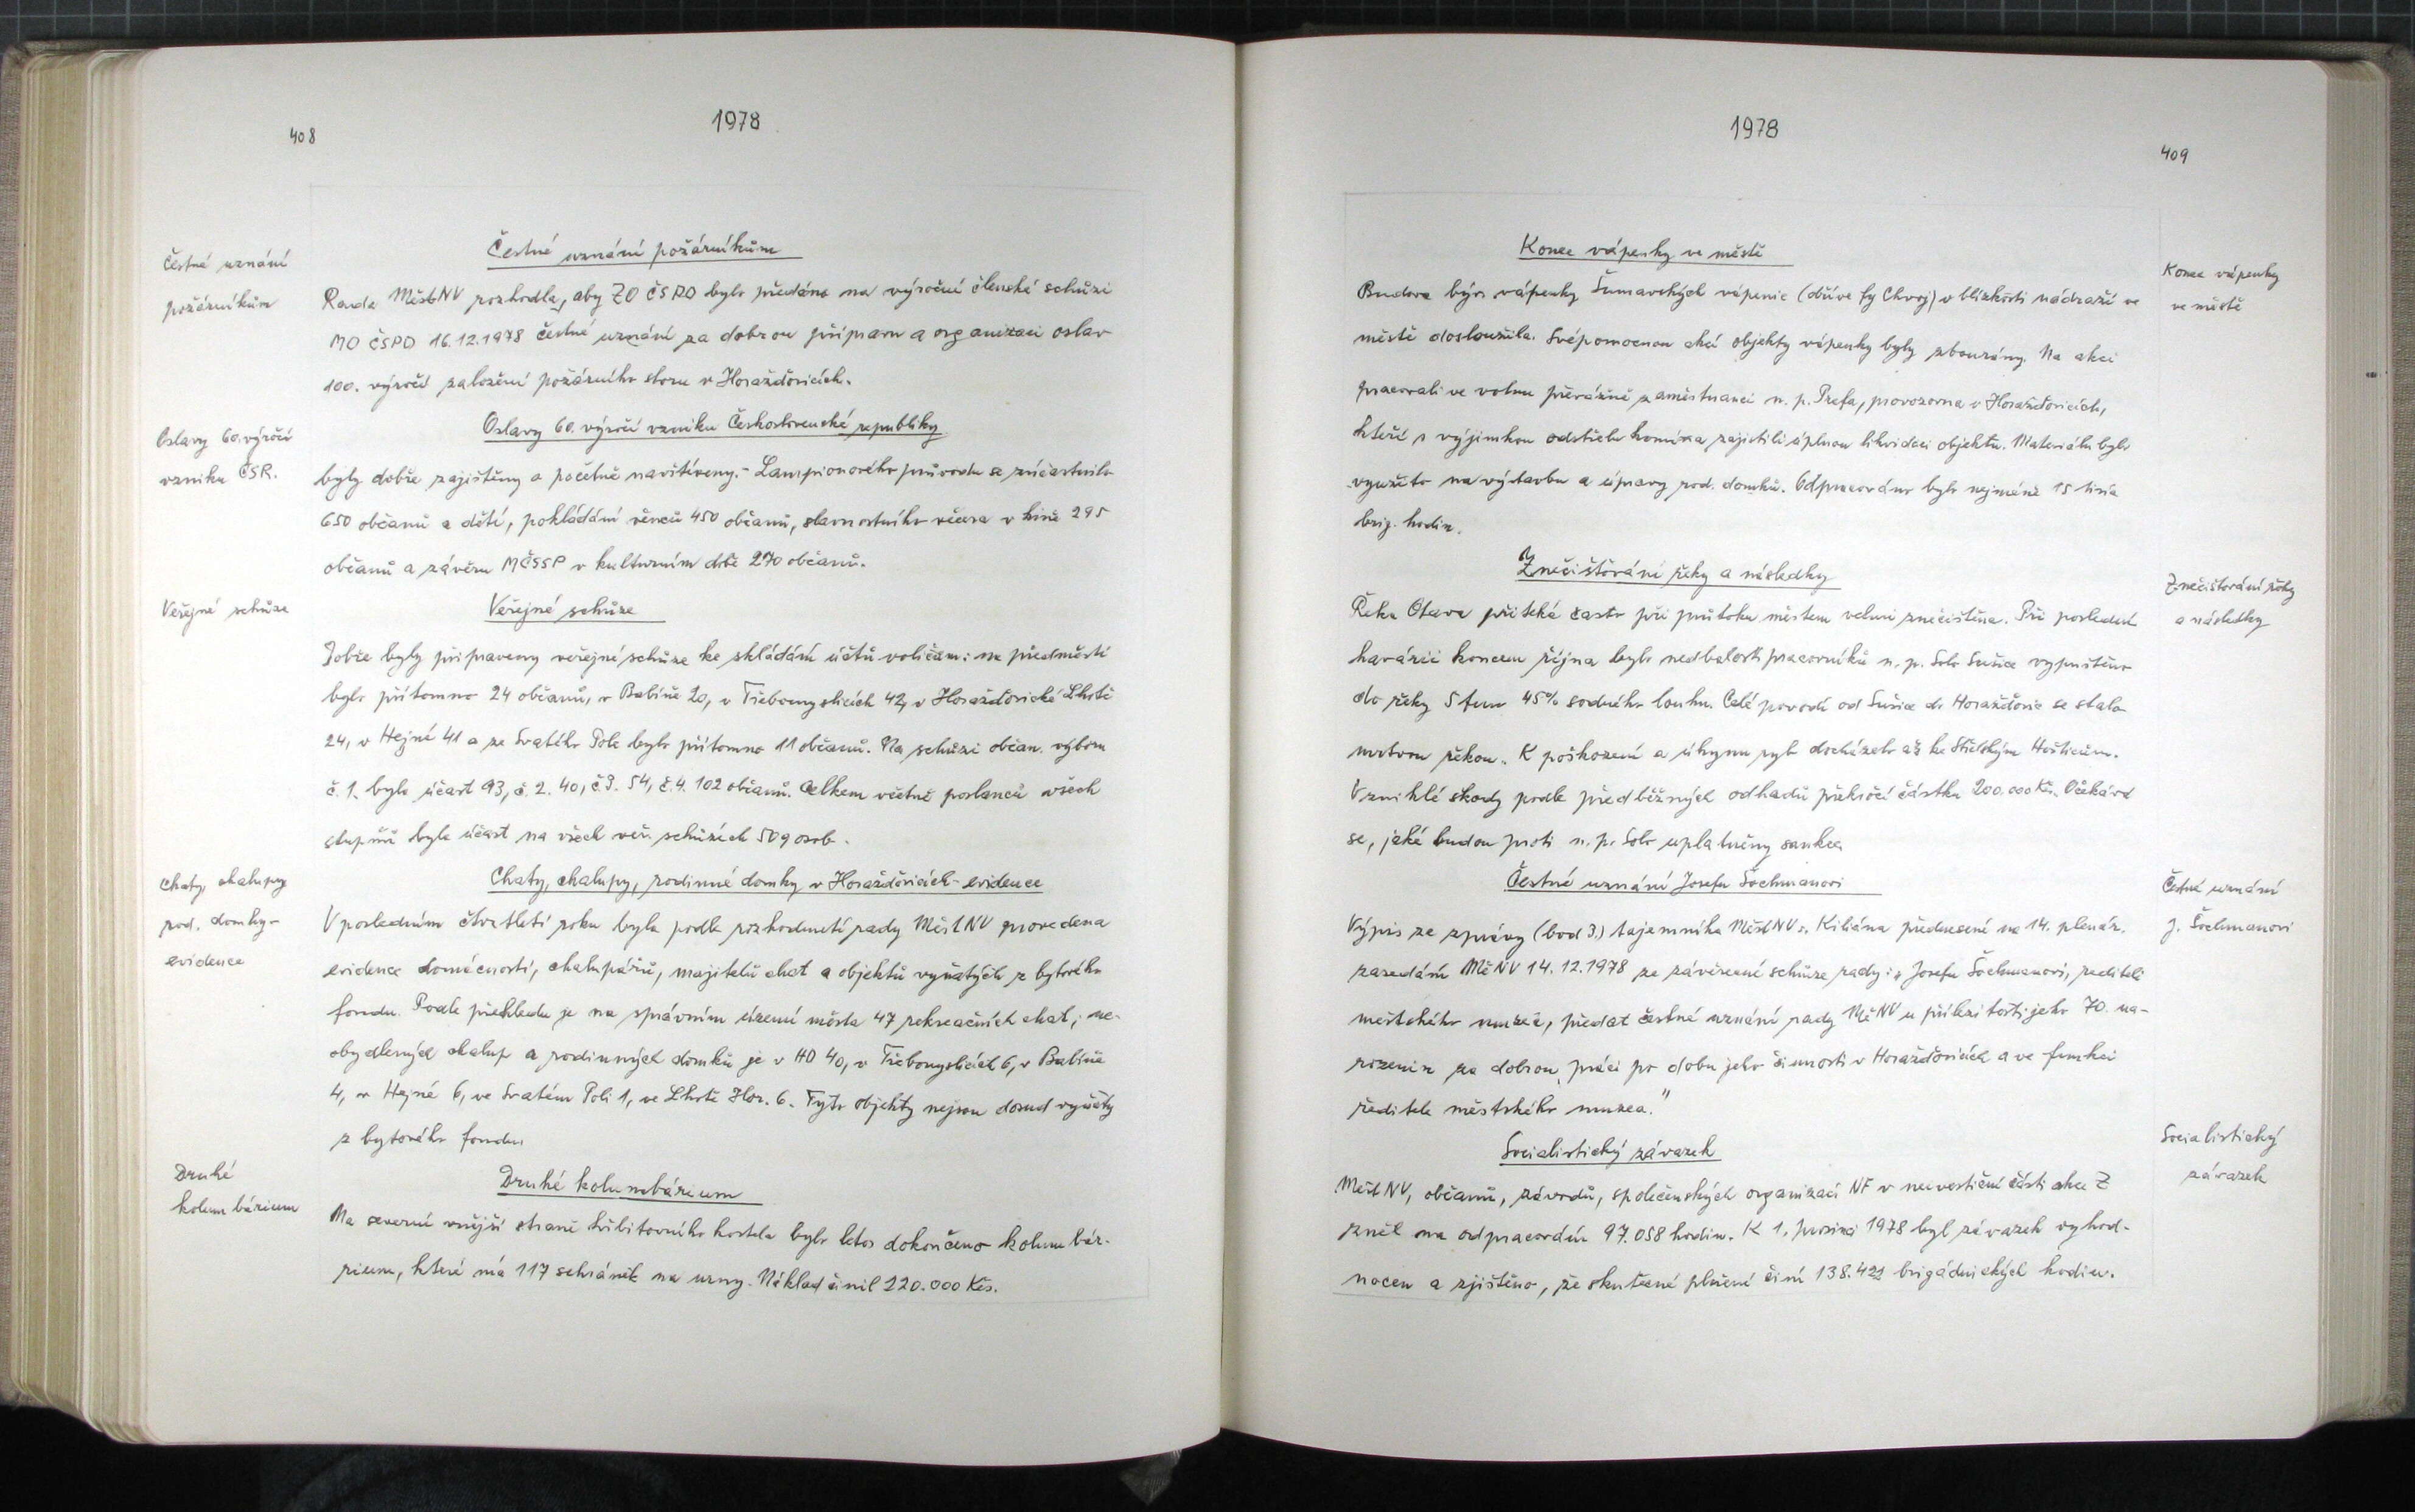 408
1978
Čestné uznání
požárníkům
Čestné uznání požárníkům
Rada MěstNV rozhodla, aby ZO ČSPO bylo předáno na výroční členské schůzi
MO ČSPO 16.12.1978 čestné uznání za dobrou přípravu a organizaci oslav
100. výročí založení požárního sboru v Horažďovicích.
Oslavy 60. výročí
vzniku ČSR.
Oslavy 60. výročí vzniku Československé republiky
byly dobře zajištěny a početně navštíveny. - Lampionového průvodu se zúčastnilo
650 občanů a dětí, pokládání věnců 450 občanů, slavnostního večera v kině 295
občanů a závěru MČSSP v kulturním domě 270 občanů.
Veřejné schůze
Veřejné schůze
Dobře byly připraveny veřejné schůze ke skládání účtů voličům: na předměstí
bylo přítomno 24 občanů, v Babíně 20, v Třebomyslicích 42, v Horažďovické Lhotě
24, v Hejné 41 a ze Svatého Pole bylo přítomno 11 občanů. Na schůzi občan. výboru
č. 1. byla účast 93, č. 2. 40, č.3. 54, č.4. 102 občanů. Celkem včetně poslanců všech
stupňů byla účast na všech veř. schůzích 509 osob.
Chaty, chalupy
rod. domky -
evidence
Chaty, chalupy, rodinné domky v Horažďovicích - evidence
V posledním čtvrtletí roku byla podle rozhodnutí rady MěstNV provedena
evidence domácností, chalupářů, majitelů chat a objektů vyňatých z bytového
fondu. Podle přehledu je na správním území města 47 rekreačních chat, ne-
obydlených chalup a rodinných domků je v HD 40, v Třebomyslicích 6, v Babíně
4, v Hejné 6, ve Svatém Poli 1, ve Lhotě Hor. 6. Tyto objekty nejsou dosud vyňaty
z bytového fondu.
Druhé
kolumbárium
Druhé kolumbárium
Na severní vnější straně hřbitovního kostela bylo letos dokončeno kolumbár-
rium, které má 117 schránek na urny. Náklad činil 120.000 Kčs.
1978
409
Konec vápenky ve městě
Konec vápenky
ve městě
Budova býv. vápenky Šumavských vápenic (dříve fy Chvoj) v blízkosti nádraží ve
městě dosloužila. Svépomocnou akcí objekty vápenky byly zbourány. Na akci
pracovali ve volnu převážně zaměstnanci n. p. Prefa, provozovna v Horažďovicích,
kteří s výjimkou odstřelu komína zajistili úplnou likvidaci objektu. Materiálu bylo
využito na výstavbu a úpravy rod. domků. Odpracováno bylo nejméně 15 tisíc
brig. hodin.
Znečišťování řeky a následky
Znečišťování řeky
a následky
Řeka Otava přitéká často při průtoku městem velmi znečištěna. Při poslední
havárii koncem října bylo nedbalostí pracovníků n. p. Solo Sušice vypuštěno
do řeky 5 tun 45% sodného louhu. Celé povodí od Sušice do Horažďovic se stalo
mrtvou řekou. K poškození a úhynu ryb docházelo až ke Střelským Hošticům.
Vzniklé škody podle předběžných odhadů překročí částku 200.000 Kčs. Očekává
se, jaké budou proti n. p. Solo uplatněny sankce.
Čestné uznání Josefu Šochmanovi
Čestné uznání
J. Šochmanovi
Výpis ze zprávy (bod 3.) tajemníka MěstNV s. Kiliána přednesené na 14. plenár.
zasedání MěNV 14. 12.1978 ze závěrečné schůze rady: „Josefu Šochmanovi, řediteli
městského muzea, předat čestné uznání rady MěNV u příležitosti jeho 70. na-
rozenin za dobrou práci po dobu jeho činnosti v Horažďovicích a ve funkci
ředitele městského muzea."
Socialistický závazek
Socialistický
závazek
MěstNV, občanů, závodů, společenských organizací NF v neinvestiční části akce Z
zněl na odpracování 97.058 hodin. K 1. prosinci 1978 byl závazek vyhod-
nocen a zjištěno, že skutečné plnění činí 138.421 brigádnických hodin.